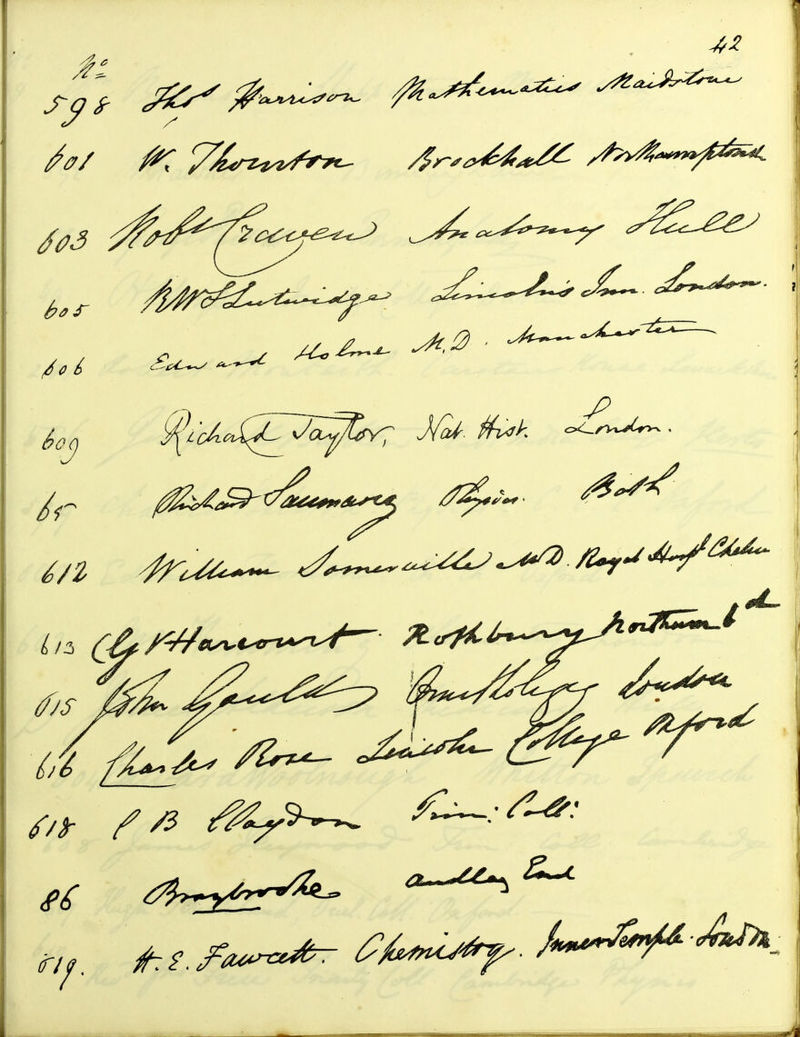 42
No
598 Thos Harrison Mathematics Maidstone
601 W. Thornton Brockhall Northamptonsh
603 Robt Craven Anatomy Hull
605 RWS Lutwidge Lincoln's Inn. London.
606 Edward Holme M.D. Manchester
609 Richard Taylor, Nat. Hist. London.
65 Richard Saumarez Physics. Bath
612 William Somerville M.D. Royal Hospl Chelsea
613 C G V Harcourt Rothbury Northumbd
615 John Gould Ornithology London
616 Charles Rose Lincoln College Oxford
618 C B Claydon Trin: Coll:
86 Braybrooke Audley End
619. H. E. Fawcett. Chemistry. Inner Temple. London.